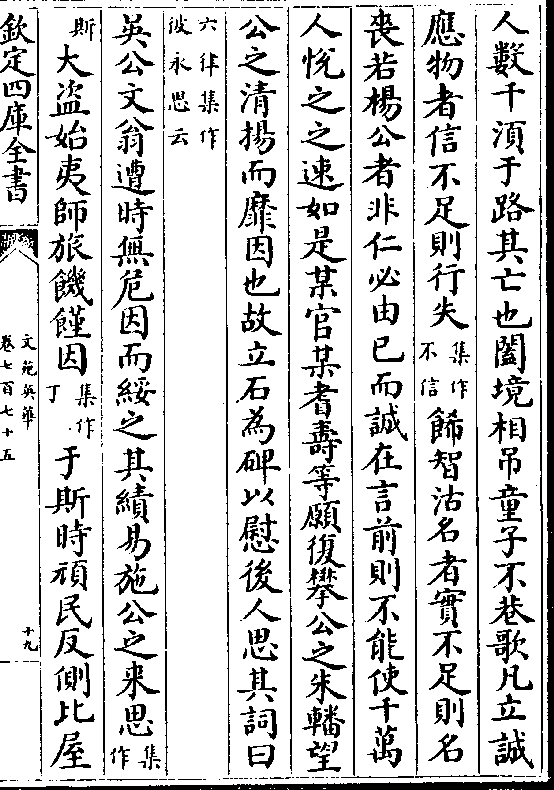 人數千湏于路其亡也闔境相吊童子不巷歌凡立誠
應物者信不足則行失集作不信飾智沽名者實不足則名
喪若楊公者非仁必由已而誠在言前則不能使千萬
人悅之之速如是某官某耆壽等願復攀公之朱轓望
公之清揚而靡因也故立石為碑以慰後人思其詞曰
六律集作彼永思云
英公文翁遭時無危因而綏之其績易施公之来思集作
斯大盗始夷師旅饑饉因集作丁于斯時頑民反側比屋
欽定四庫全書
文苑英華
卷七百七十五
十九